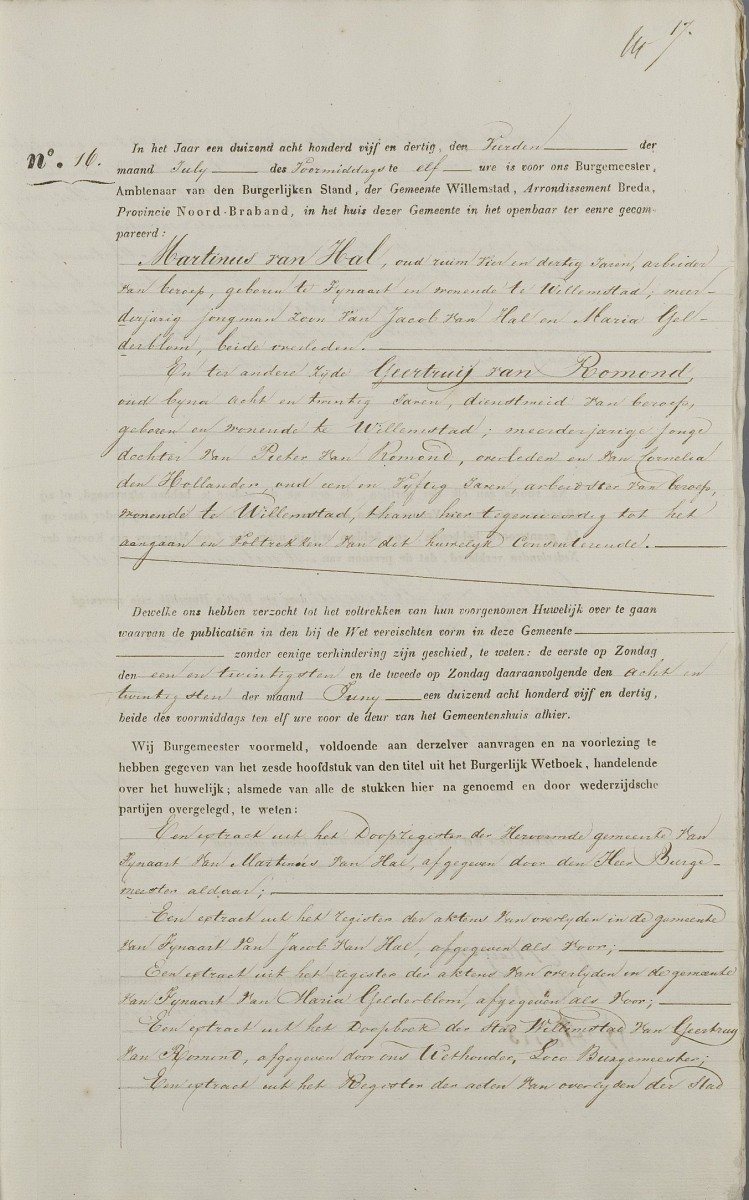 17.
nº. 16.
In het Jaar een duizend acht honderd vijf en dertig, den Vierden der
maand July des Voormiddags te elf ure is voor ons Burgemeester,
Ambtenaar van den Burgerlijken Stand, der Gemeente Willemstad, Arrondissement Breda,
Provincie Noord-Braband, in het huis dezer Gemeente in het openbaar ter eenre gecom-
pareerd:
Martinus van Hal, oud ruim Vier en dertig Jaren, arbeider
van beroep, geboren te Fynaart en wonende te Willemstad, meer-
derjarig jongman zoon van Jacob van Hal en Maria Gel-
derblom, beide overleden.
En ter andere zyde Geertruij van Romond,
oud byna acht en twintig Jaren, dienstmeid van beroep,
geboren en wonende te Willemstad; meerderjarige jonge
dochter van Pieter van Romond, overleden en van Cornelia
den Hollander, oud een en Vyftig Jaren, arbeidster van beroep,
wonende te Willemstad, thans hier tegenwoordig tot het
aangaan en Voltrekken van dit huwelyk Consenteerende.
Dewelke ons hebben verzocht tot het voltrekken van hun voorgenomen Huwelijk over te gaan
waarvan de publicatiën in den bij de Wet vereischten vorm in deze Gemeente
zonder eenige verhindering zijn geschied, te weten: de eerste op Zondag
den een en twintigsten en de tweede op Zondag daaraanvolgende den acht en
twintigsten der maand Juny een duizend acht honderd vijf en dertig,
beide des voormiddags ten elf ure voor de deur van het Gemeentenshuis alhier.
Wij Burgemeester voormeld, voldoende aan derzelver aanvragen en na voorlezing te
hebben gegeven van het zesde hoofdstuk van den titel uit het Burgerlijk Wetboek, handelende
over het huwelijk; alsmede van alle de stukken hier na genoemd en door wederzijdsche
partijen overgelegd, te weten:
Een extract uit het Doopregister der Hervormde gemeente van
Fynaart van Martinus van Hal, afgegeven door den Heer Burge-
meester aldaar;
Een extract uit het register der aktens van overlyden in de gemeente
van Fynaart van Jacob van Hal, afgegeven als voor;
Een extract uit het register der aktens van overlyden in de gemeente
van Fynaart van Maria Gelderblom, afgegeven als voor;
Een extract uit het Doopboek der Stad Willemstad van Geertruy
van Romond, afgegeven door ons Wethouder, Loco Burgemeester;
Een extract uit het Register der acten van overlyden der Stad